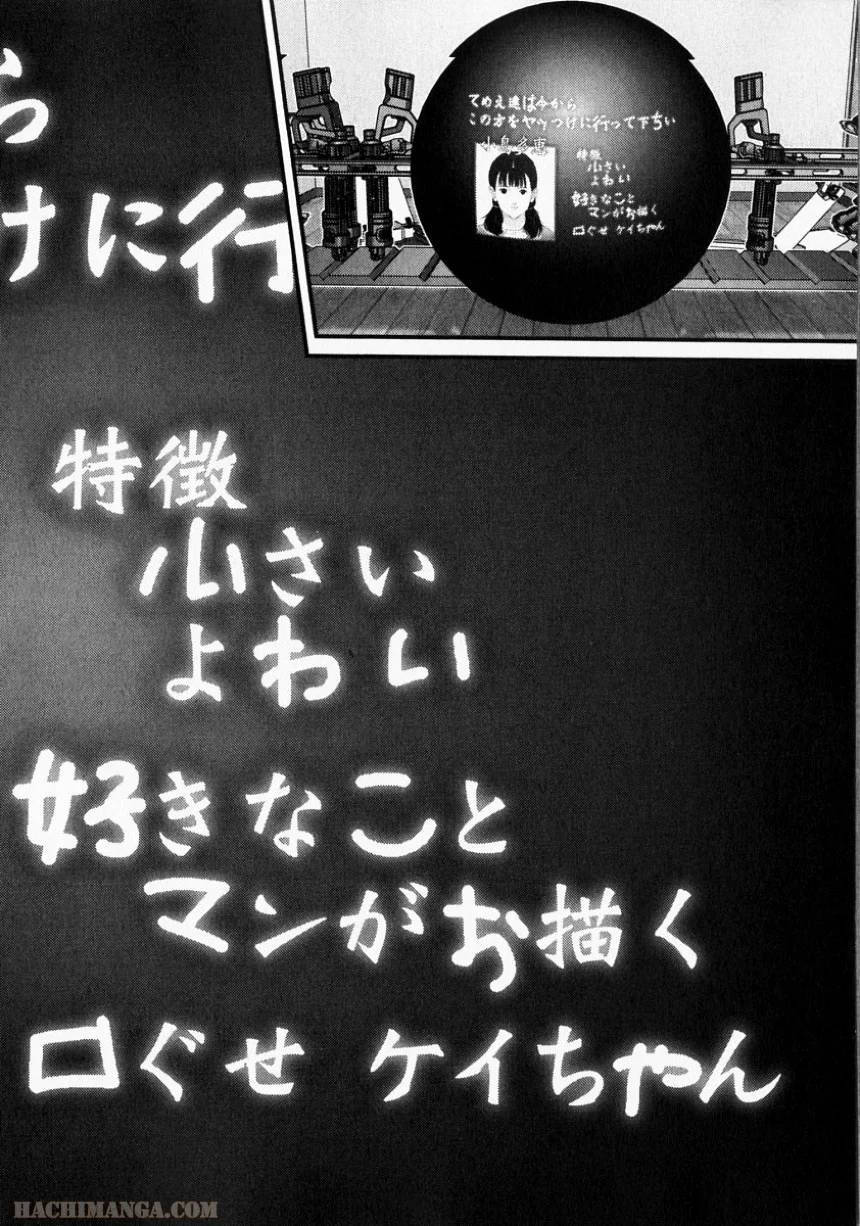 てめえ達は今から
この方をヤッつけに行って下ちい
小島多恵
特徴
小さい
よわい
好きなこと
マンがお描く
口ぐせ ケイちゃん
ら
けに行
特徴
小さい
よわい
好きなこと
マンがお描く
口ぐせ ケイちゃん
HACHIMANGA.COM